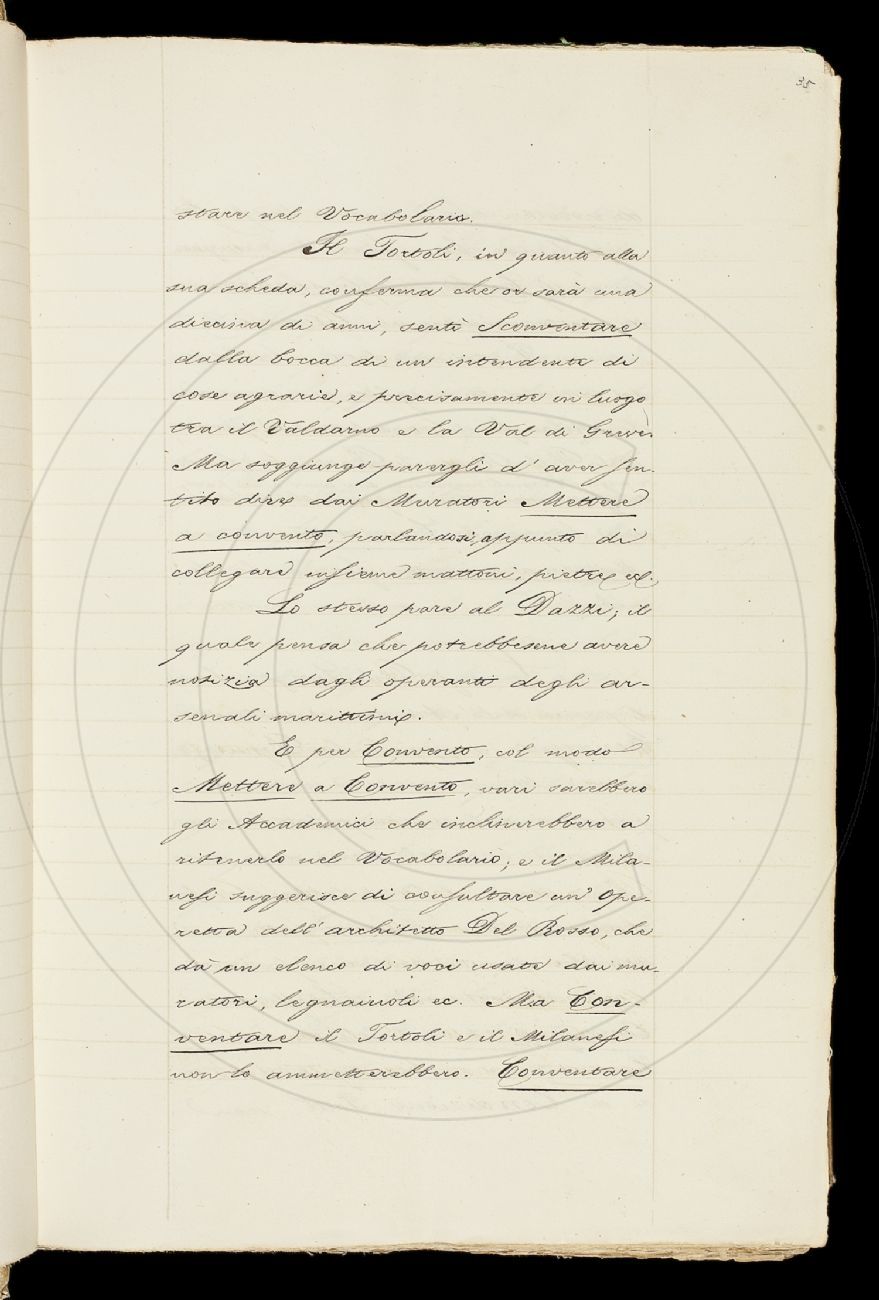 35
stare nel Vocabolario.
Il Tortoli, in quanto alla
sua scheda, conferma che or sarà una
diecina di anni, sentì Sconventare
dalla bocca di un intendente di
cose agrarie, e precisamente in luogo
tra il Valdarno e la Val di Greve.
Ma soggiunge parergli d' aver sen-
tito dire dai Muratori Mettere
a convento, parlandosi appunto di
collegare insieme mattoni, pietre ec.
Lo stesso pare al Dazzi; il
quale pensa che potrebbesene avere
notizia dagli operanti degli ar-
senali marittimi.
E per Convento, col modo
Mettere a Convento, vari sarebbero
gli Accademici che inclinerebbero a
ritenerlo nel Vocabolario; e il Mila-
nesi suggerisce di consultare un' Ope-
retta dell' architetto Del Rosso, che
dà un elenco di voci usate dai mu-
ratori, legnaiuoli ec. Ma Con-
ventare il Tortoli e il Milanesi
non lo ammetterebbero. Conventare